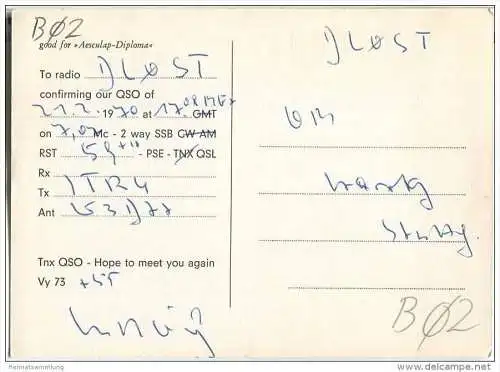 BØ2
good for »Aesculap-Diploma«
To radio DLØST
confirming our QSO of
21.2. 1970 at 17.08 MEZ GMT
on 7,07 Mc - 2 way SSB CW AM
RST 59+10 - PSE - TNX QSL
Rx
Tx
Ant
Tnx QSO - Hope to meet you again
Vy 73 + 55
DLØST
OM
BØ2
Heimatsammlung
www.delcampe.net